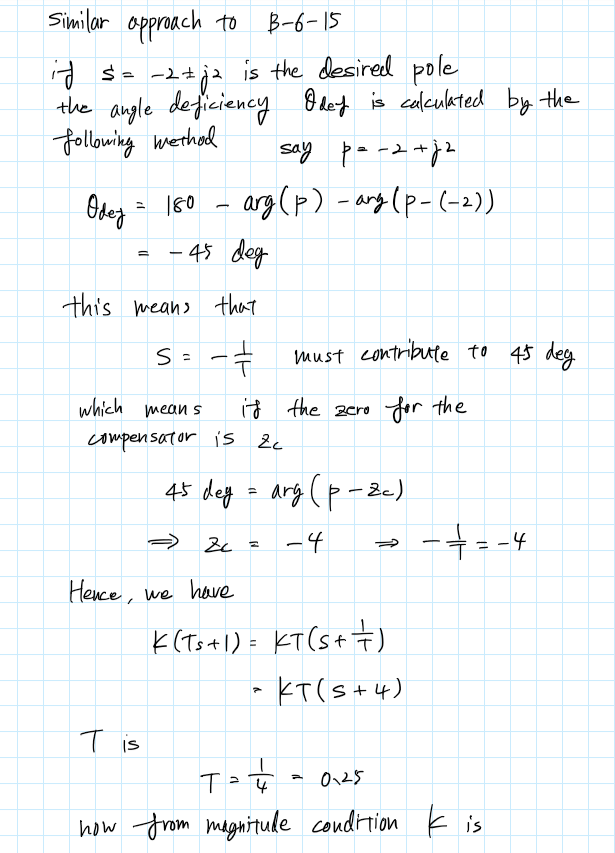 Similar approach to B-6-15
if s = -2 ± j2 is the desired pole
the angle deficiency θdef is calculated by the
following method say p = -2 + j2
θdef = 180 - arg(p) - arg(p-(-2))
= -45 deg
this means that
S = -1/T must contribute to 45 deg
which means if the zero for the
compensator is zc
45 deg = arg(p-zc)
⇒ zc = -4 ⇒ -1/T = -4
Hence, we have
K(Ts+1) = KT(s+1/T)
= KT(s+4)
T is
T = 1/4 = 0.25
now from magnitude condition K is